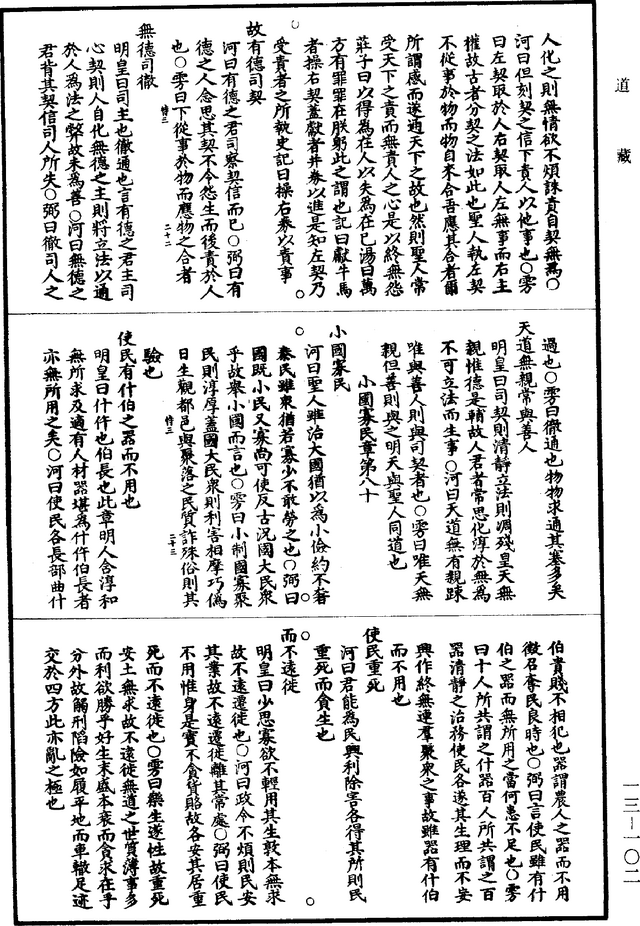 道藏
人化之則無情欲不煩誅責自契無為○
河曰但刻契之信下責人以他事也○雱
曰左契取於人右契取人左無事而右主
權故古者分契之法如此也聖人執左契
不從事於物而物自來合吾應其合者爾
所謂感而遂通天下之故也然則聖人常
受天下之責而無責人之心是以終無怨
莊子曰以得為在人以失為在己湯曰萬
方有罪罪在朕躬此之謂也記曰獻牛馬
者操右契蓋獻者并券以進是知左契乃
受責者之所執史記曰操右券以責事
故有德司契
河曰有德之君司察契信而已○弼曰有
德之人念思其契不令怨生而後責於人
也○雱曰下從事於物而應物之合者
無德司徹
明皇曰司主也徹通也言有德之君主司
心契則人自化無德之主則將立法以通
於人為法之弊故未為善○河曰無德之
君背其契信司人所失○弼曰徹司人之
過也○雱曰徹通也物物求通其塞多矣
天道無親常與善人
明皇曰司契則清靜立法則凋殘皇天無
親惟德是輔故人君者常思化淳於無為
不可立法而生事○河曰天道無有親踈
唯與善人則與司契者也○雱曰唯天無
親但善則與之明天與聖人同道也
小國寡民章第八十
小國寡民
河曰聖人雖治大國猶以為小儉約不奢
泰民雖衆猶若寡少不敢勞之也○弼曰
國既小民又寡尚可使反古況國大民衆
乎故舉小國而言也○雱曰小制國寡聚
民則淳厚蓋國大民衆則利害相摩巧偽
日生觀都邑與聚落之民質詐殊俗則其
驗也
使民有什伯之器而不用也
明皇曰什仵也伯長也此章明人含淳和
無所求及適有人材器堪為什仵伯長者
亦無所用之矣○河曰使民各長部曲什
伯貴賤不相犯也器謂農人之器而不用
徵召奪民良時也○弼曰言使民雖有什
伯之器而無所用之當何患不足也○雱
曰十人所共謂之什器百人所共謂之百
器清靜之治務使民各遂其生理而不妄
興作終無連羣聚衆之事故雖器有什伯
而不用也
使民重死
河曰君能為民興利除害各得其所則民
重死而貪生也
而不遠徙
明皇曰少思寡欲不輕用其生敦本無求
故不遠遷徙也○河曰政令不煩則民安
其業故不遠遷徙離其常處○弼曰使民
不用惟身是寶不貪貨賂故各安其居重
死而不遠徙也○雱曰樂生遂性故重死
安土無求故不遠徙無道之世質薄事多
而利欲勝乎好生末盛本衰而貪求在乎
分外故觸刑陷險如履平地而車轍足迹
交於四方此亦亂之極也
一三—一〇二